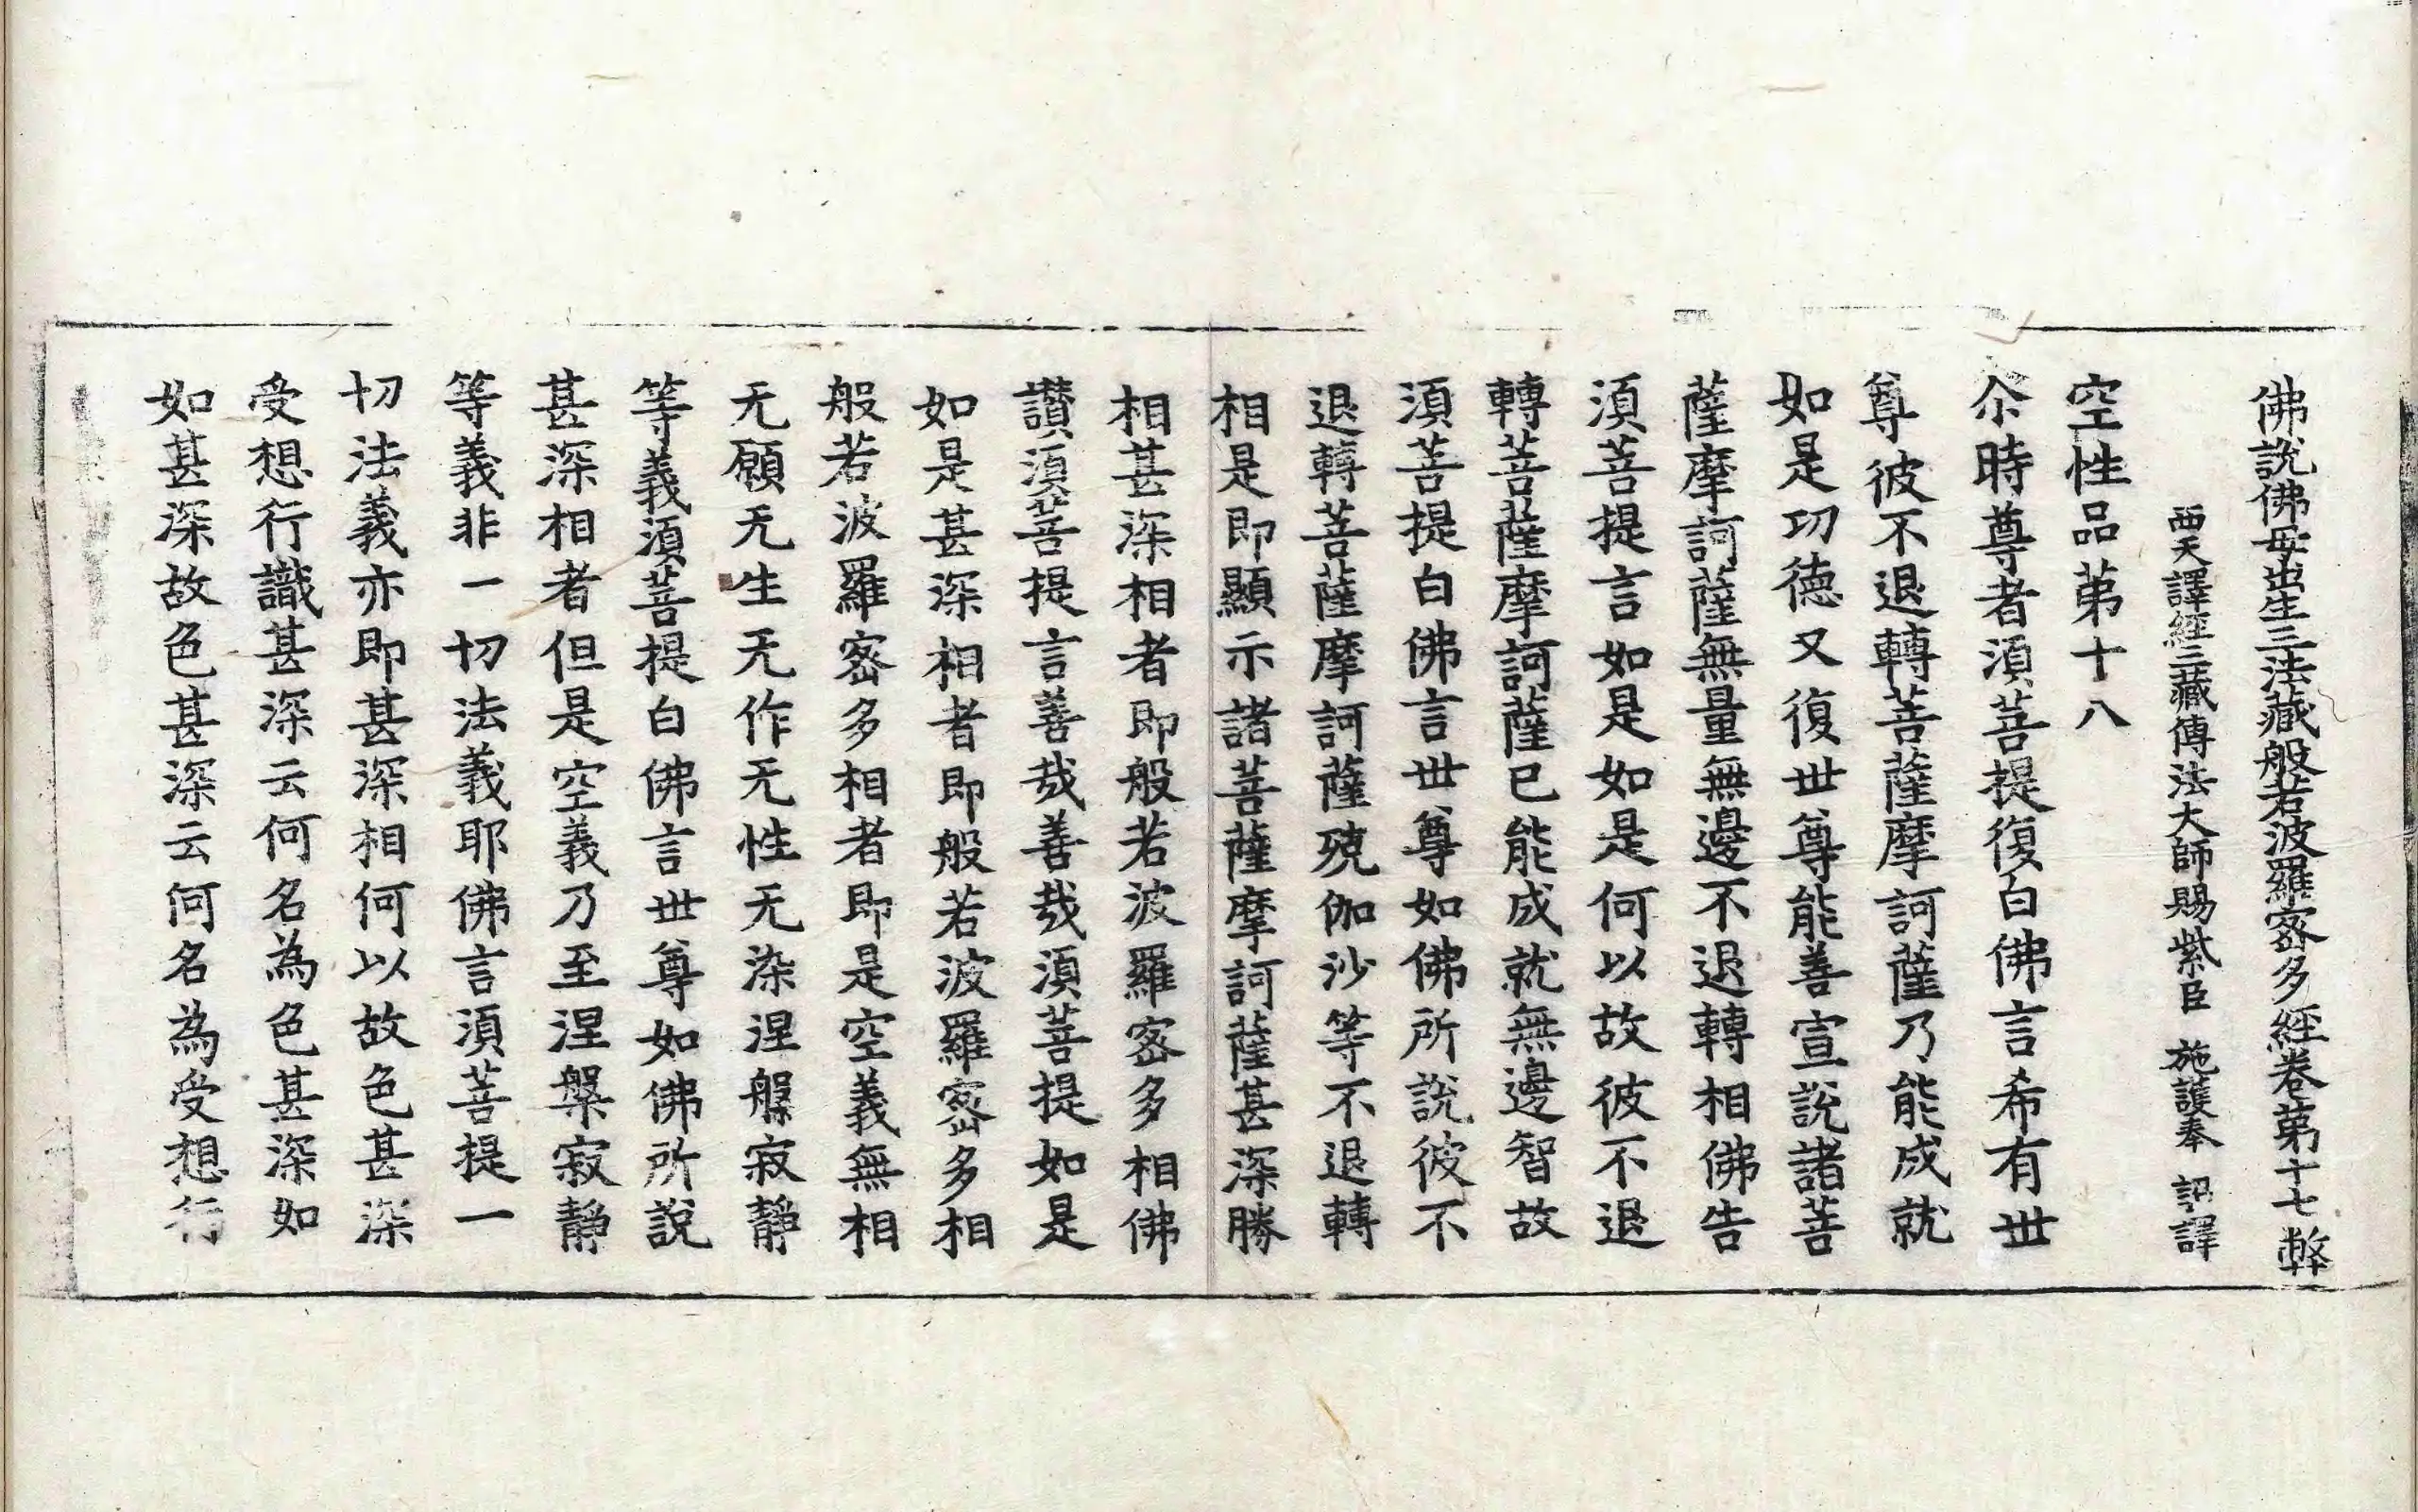 佛說佛母出生三法藏般若波羅蜜多經卷第十七 弊
西天譯經三藏傳法大師賜紫臣 施護奉 詔譯
空性品第十八
尒時尊者須菩提復白佛言希有世
尊彼不退轉菩薩摩訶薩乃能成就
如是功德又復世尊能善宣說諸菩
薩摩訶薩無量無邊不退轉相佛告
須菩提言如是如是何以故彼不退
轉菩薩摩訶薩已能成就無邊智故
須菩提白佛言世尊如佛所說彼不
退轉菩薩摩訶薩殑伽沙等不退轉
相是即顯示諸菩薩摩訶薩甚深勝
相甚深相者即般若波羅蜜多相佛
讚須菩提言善哉善哉須菩提如是
如是甚深相者即般若波羅蜜多相
般若波羅蜜多相者即是空義無相
无願无生无作无性无染涅槃寂靜
等義須菩提白佛言世尊如佛所說
甚深相者但是空義乃至涅槃寂靜
等義非一切法義耶佛言須菩提一
切法義亦即甚深相何以故色甚深
受想行識甚深云何名為色甚深如
如甚深故色甚深云何名為受想行